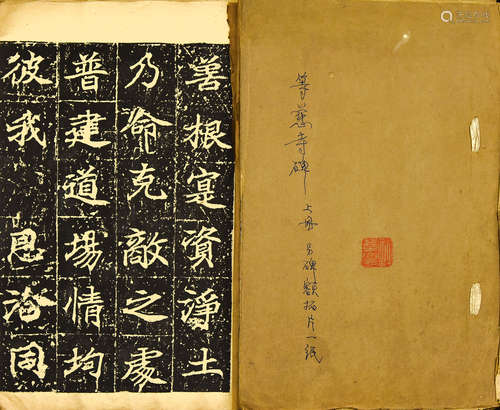 等慈寺碑 上册 另碑額拓片一紙
善根寔資淨土
乃命克敵之處
普建道場情均
彼我恩洽同